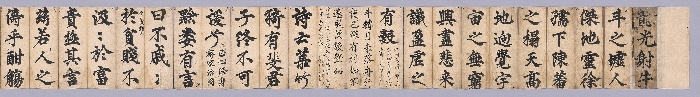 龍光射牛
斗之墟人
傑地靈徐
孺下陳蕃
之榻天高
地迥覺宇
宙之無窮
興盡悲來
識盈虛之
有數
詩云菉竹
猗有斐君
子終不可
諼兮
黔婁有言
曰不戚〻
於貧賤不
汲〻於富
貴極其言
茲若人之
儔乎酣觴